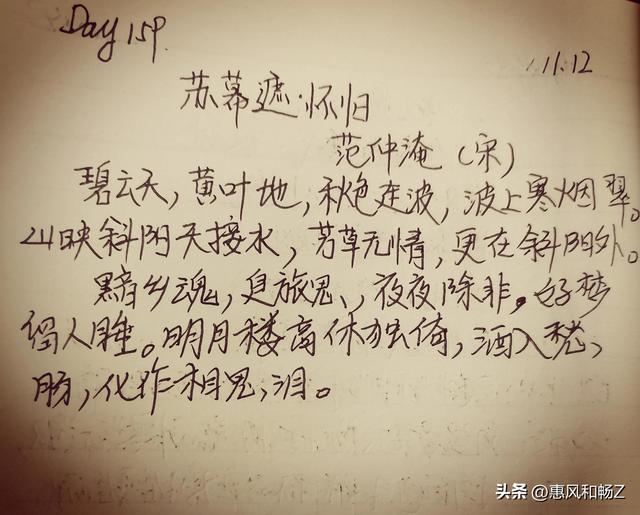 Day 159
11.12
苏幕遮·怀归
范仲淹(宋)
碧云天,黄叶地,秋色连波,波上寒烟翠。
山映斜阳天接水,芳草无情,更在斜阳外。
黯乡魂,追旅思,夜夜除非。好梦
留人睡。明月楼高休独倚,酒入愁
肠,化作相思泪。
头条 @惠风和畅Z